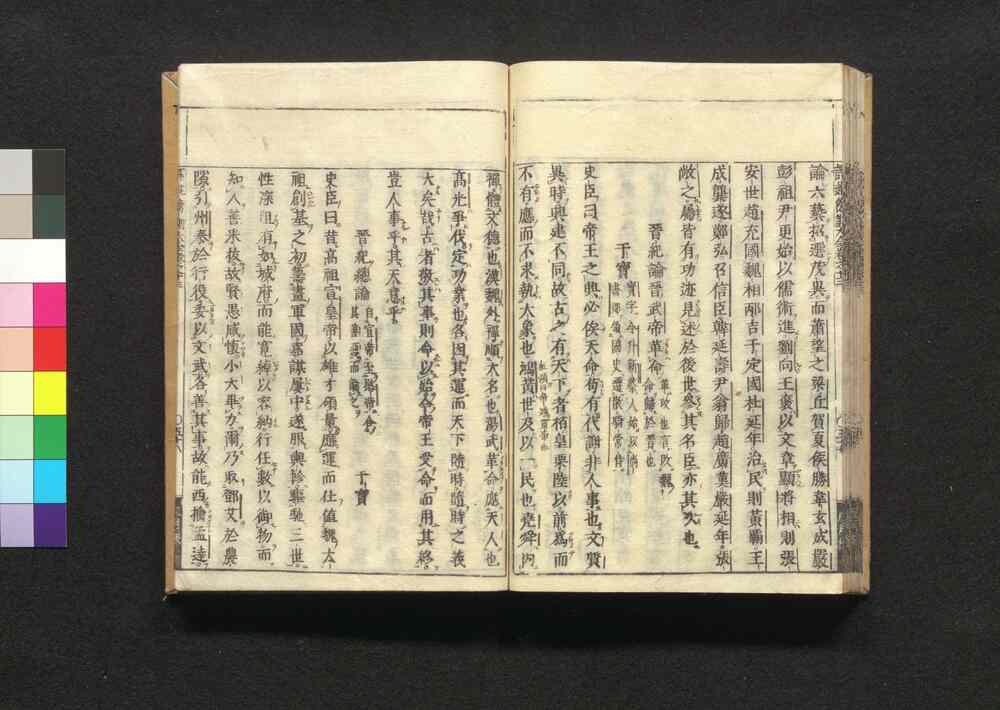 論六藝招選茂異而蕭望之梁丘賀夏侯勝韋玄成嚴
彭祖尹更始以儒術進劉向王褒以文章顯將相則張
安世趙充國魏相邴吉于定國杜延年治民則黃霸王
成龔遂鄭弘召信臣韓延壽尹翁歸趙廣漢嚴延年張
敞之屬皆有功迹見述於後世參其名臣亦其次也
晉紀論晉武帝革命
干寶
史臣曰帝王之興必俟天命苟有代謝非人事也文質
異時興建不同故古之有天下者栢皇栗陸以前爲而
不有應而不求執大象也鴻黃世及以一民也堯舜內
禪體文德也漢魏外禪順大名也湯武革命應天人也
高光爭伐定功業也各因其運而天下隨時隨時之義
大矣哉古者敬其事則命以始今帝王受命而用其終
豈人事乎其天意乎
晉紀總論
干寶
史臣曰昔高祖宣皇帝以雄才碩量應運而仕値魏太
祖創基之初籌畫軍國嘉謀屢中遂服輿軫驅馳三世
性深阻有如城府而能寬綽以容納行任數以御物而
知人善采拔故賢愚咸懷小大畢力爾乃取鄧艾於農
隙引州泰於行役委以文武各善其事故能西擒孟達